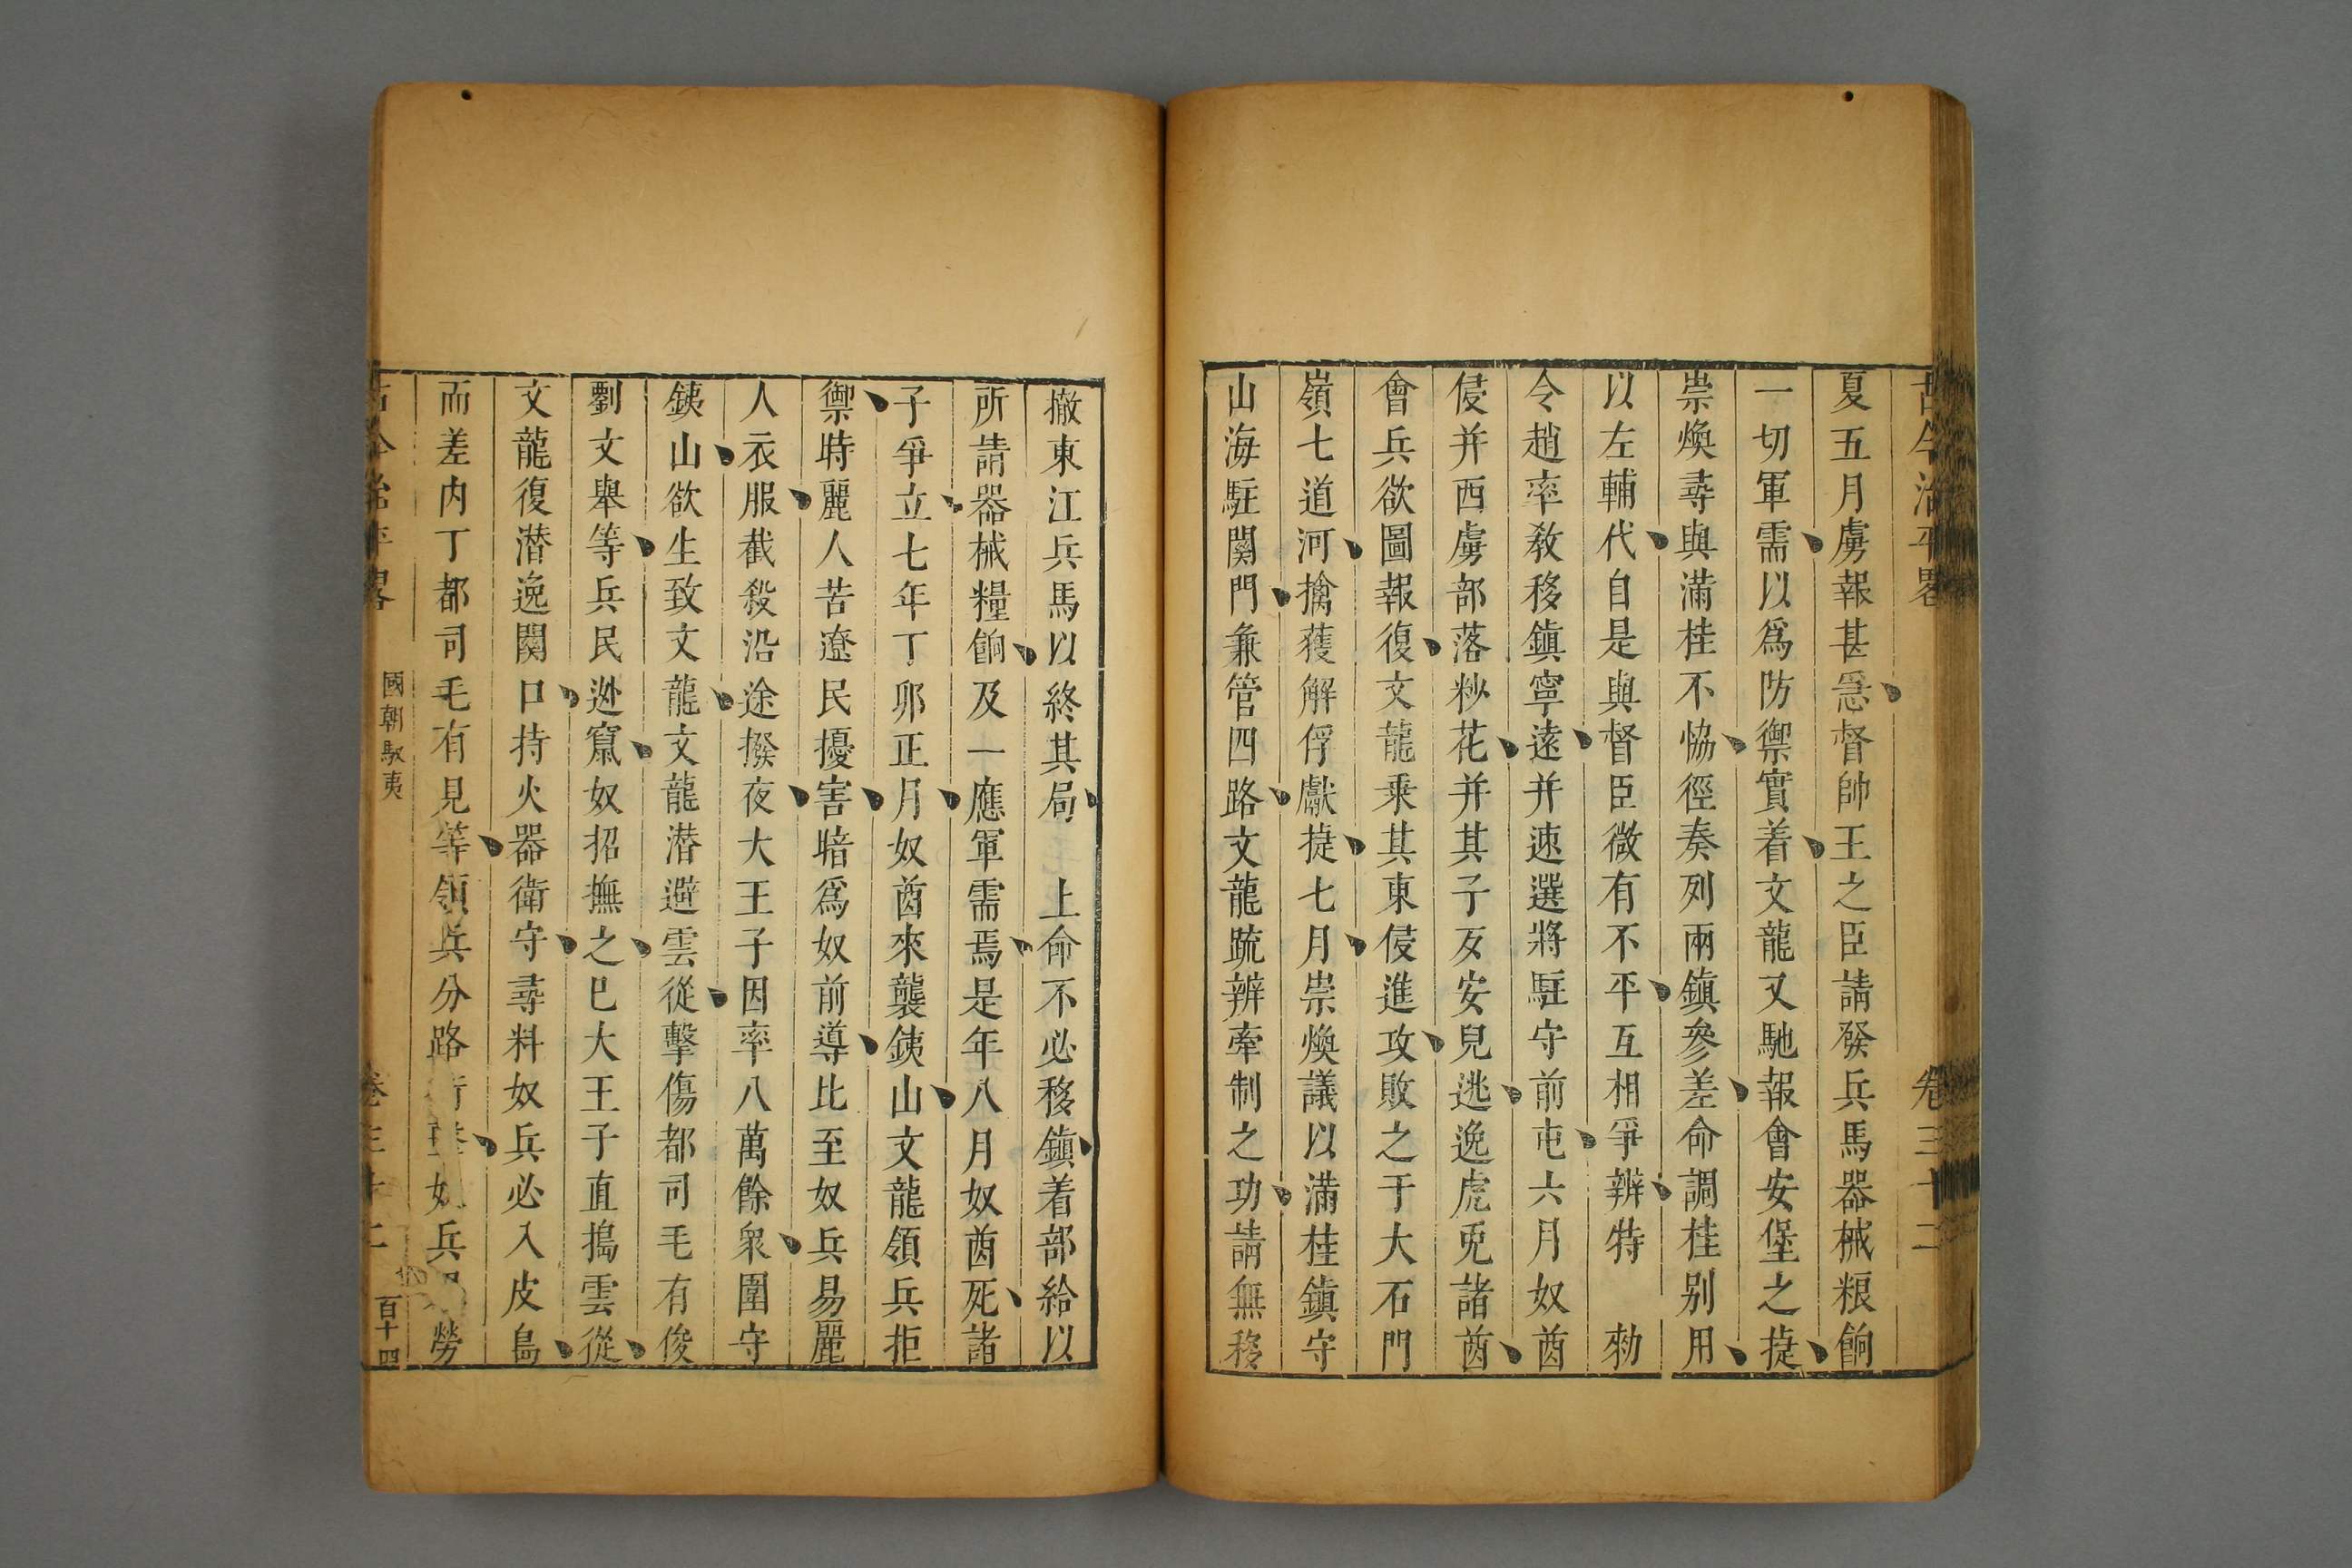 古今治平畧 卷三十二
夏五月虜報甚急督帥王之臣請發兵馬器械粮餉
一切軍需以爲防禦實着文龍又馳報會安堡之捷
崇煥尋與滿桂不恊徑奏列兩鎮參差命調桂别用
以左輔代自是與督臣微有不平互相爭辨特 勑
令趙率教移鎮寧遠并速選將駐守前屯六月奴酋
侵并西虜部落炒花并其子歹安兒逃逸虎兎諸酋
會兵欲圖報復文龍乘其東侵進攻敗之于大石門
嶺七道河擒獲解俘獻捷七月崇煥議以滿桂鎮守
山海駐関門兼管四路文龍疏辨牽制之功請無移
撤東江兵馬以終其局 上命不必移鎮着部給以
所請器械糧餉及一應軍需焉是年八月奴酋死諸
子爭立七年丁卯正月奴酋來襲鉄山文龍領兵拒
禦時麗人苦遼民擾害暗爲奴前導比至奴兵易麗
人衣服截殺沿途撥夜大王子因率八萬餘衆圍守
鉄山欲生致文龍文龍潜避雲從擊傷都司毛有俊
劉文舉等兵民迯竄奴招撫之巳大王子直搗雲從
文龍復潜逸関口持火器衛守尋料奴兵必入皮島
而差内丁都司毛有見等領兵分路奴兵勞
古今治平畧 國朝馭夷 卷三十二 百十四